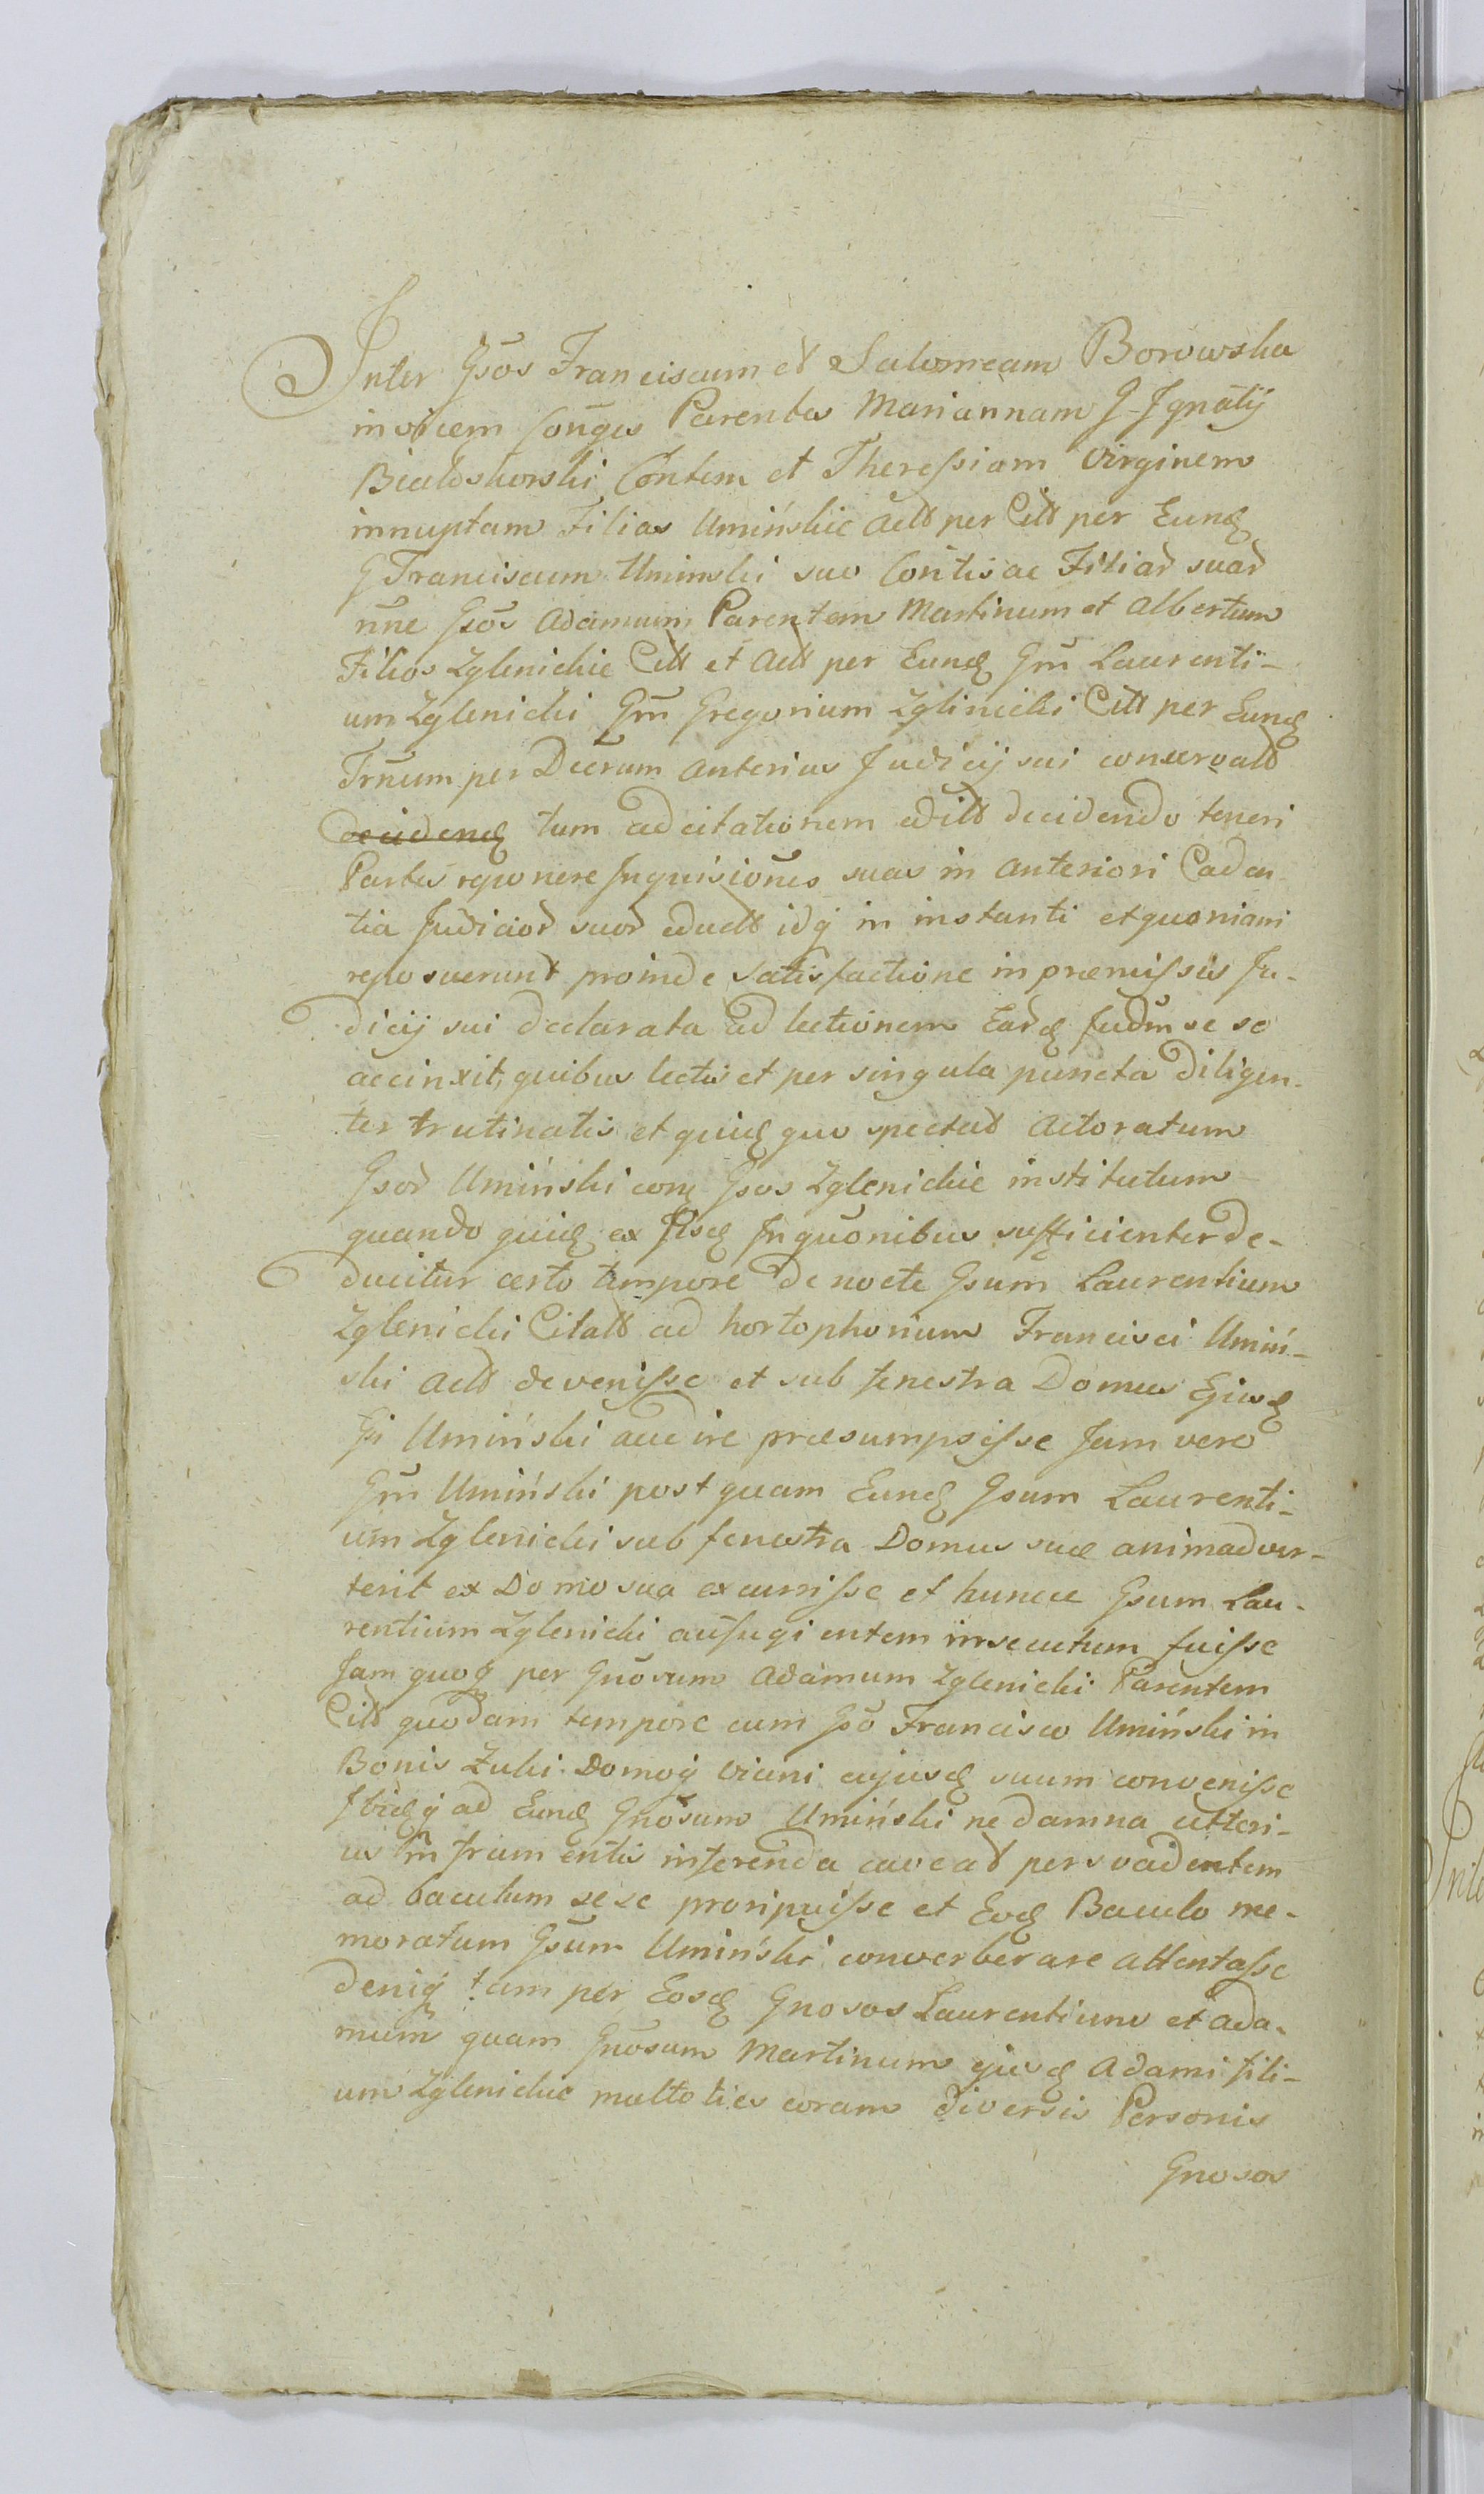 Inter Gsōs Franciscum et Salomeam Borowska
invicem Conges Parentes Mariannam G Ignatij
Białoskorski Contem et Theressiam Virginem
innuptam Filias Umińskie Actt per Citt per Eundꝫ
G Franciscum Uminski suo Contis ac Filiar suar
nne Gsōs Adamum Parentem Martinum et Albertum
Filios Zglenickie Citt et Actt per Eundꝫ Gm̄ Laurenti-
um Zglenicki Gm̄ Gregorium Zglinicki Citt per Eundꝫ
Trnum per Decrum anterius Judicij sui conservatt
decidendꝫ tum ad citationem editt decidendo teneri
Partes reponere Inquisiones suas in anteriori Caden-
tia Judicior suor eductt idq̃ in instanti et quoniam
reposuerunt proinde satisfactione in præmissis Ju-
dicij sui declarata ad lectionem Eardꝫ Judm se se
accinxit, quibus lectis et per singula puncta diligen-
ter trutinatis et quidꝫ quo spectat Actoratum
Gsor Umiński con Gsos Zglenickie institutum
quando quidꝫ ex Iisdꝫ Inquonibus sufficienter de-
ducitur certo tempore de nocte Gsum Laurentium
Zglenicki Citatt ad hortophonium Francisci Umiń-
ski Actt devenisse et sub fenestra Domus Ejusdꝫ
Gi Umiński audire præsumpsisse Jam vero
Gm̄ Umiński postquam Eundꝫ Gsum Laurenti-
um Zglenicki sub fenestra Domus suæ animadver-
terit ex Domo sua excurrisse et huncce Gsum Lau-
rentium Zglenicki aufugientem insecutum fuisse
Jam quoq̃ per Gnosum Adamum Zglenicki Parentem
Citt quodam tempore cum Gso Francisco Umiński in
Bonis Zuki Domoq̃ vicini cujusdꝫ suum convenisse
Ibidꝫq̃ ad Eundꝫ Gnosum Umiński ne damna ulteri-
us in frumentis inferenda caveat persvadentem
ad baculum sese proripuisse et Eodꝫ Baculo me-
moratum Gsum Umiński converberare attentasse
deniq̃ tam per Eosdꝫ Gnosos Laurentium et Ada-
mum quam Gnosum Martinum ejusdꝫ Adami fili-
um Zglenickie multoties coram diversis Personis
Gnosos